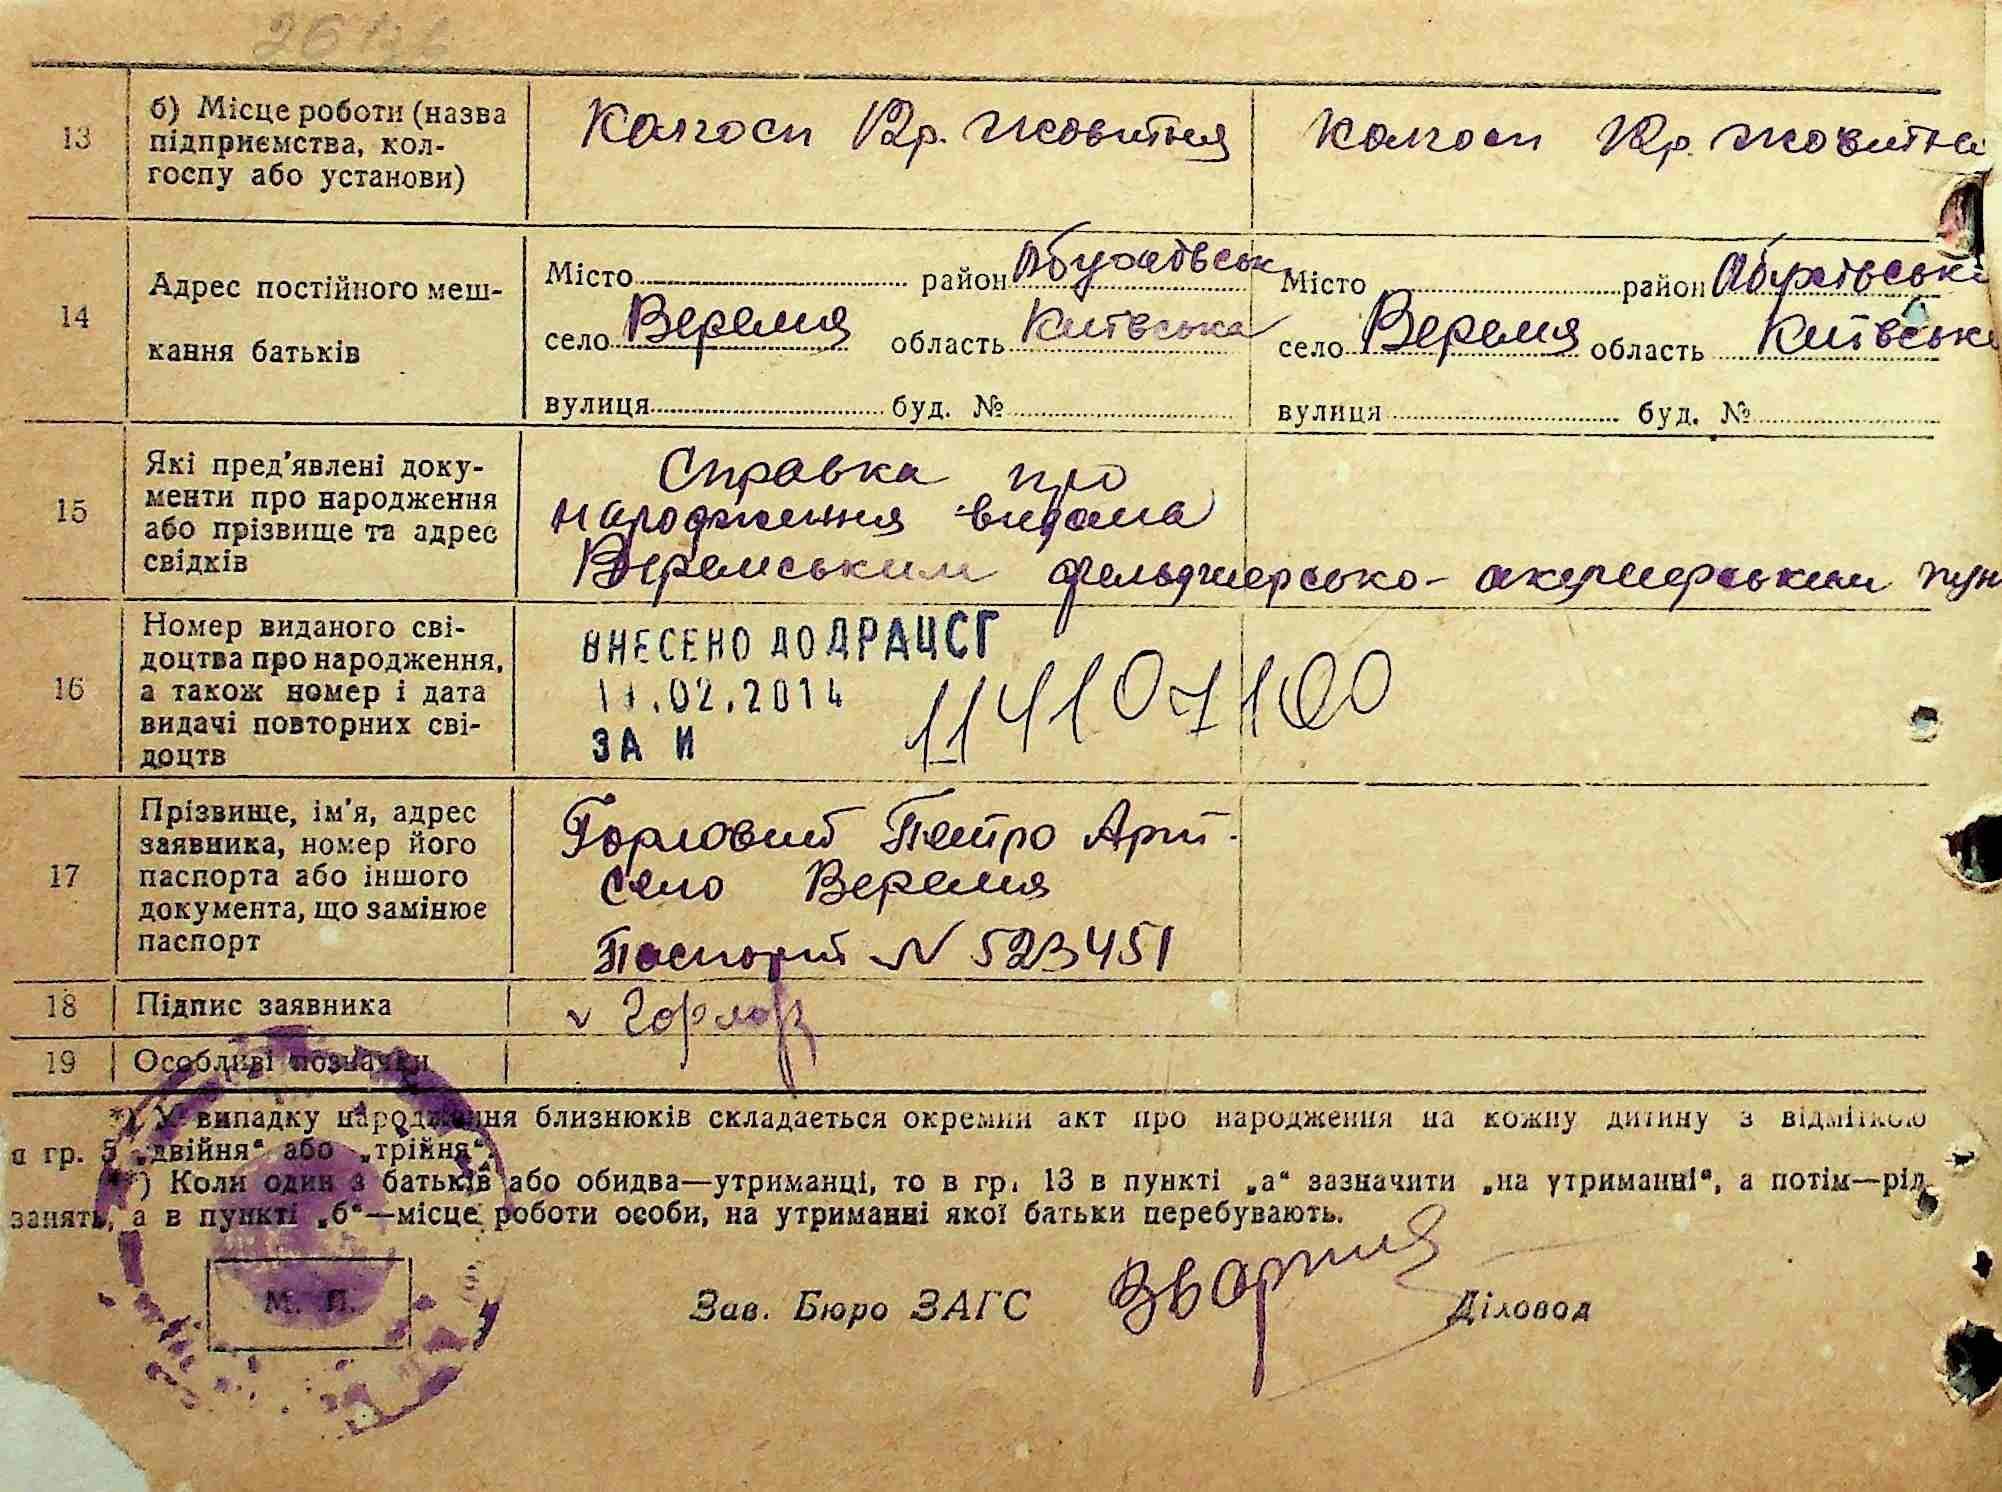 13
б) Місце роботи (назва
підприємства, кол-
госпу або установи)
Колгосп Кр. Жовтня
Колгосп Кр. Жовтня
14
Адрес постійного меш-
кання батьків
Місто район Обухівськ
село Веремя область Київська
вулиця буд. №
Місто район Обухівськ
село Веремя область Київськ
вулиця буд. №
15
Які пред'явлені доку-
менти про народження
або прізвище та адрес
свідків
Справка про
народження видана
Веремським фельдшерсько-акушерським пун
16
Номер виданого сві-
доцтва про народження,
а також номер і дата
видачі повторних сві-
доцтв
ВНЕСЕНО ДО ДРАЦСГ
11.02.2014
ЗА И
17
Прізвище, ім'я, адрес
заявника, номер його
паспорта або іншого
документа, що замінює
паспорт
Горловий Петро Арт.
село Веремя
Паспорт N 523451
18
Підпис заявника
19
Особливі позначки
*) У випадку народження близнюків складається окремий акт про народження на кожну дитину з відміткою
в гр. 5 „двійня“ або „трійня“.
**) Коли один з батьків або обидва—утриманці, то в гр. 13 в пункті „а“ зазначити „на утриманні“, а потім—рід
занять, а в пункті „б“—місце роботи особи, на утриманні якої батьки перебувають.
М. П.
Зав. Бюро ЗАГС
Діловод